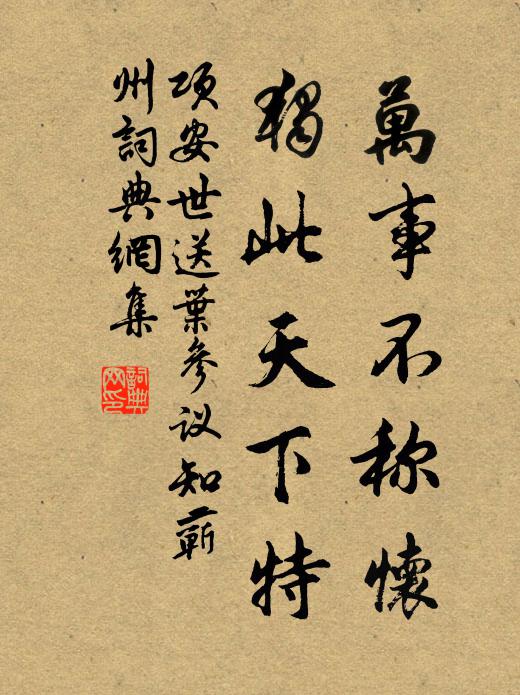 萬事不称懷
獨此天下特
項安世送葉參议知蘄
州詞典網集
詞典
网印